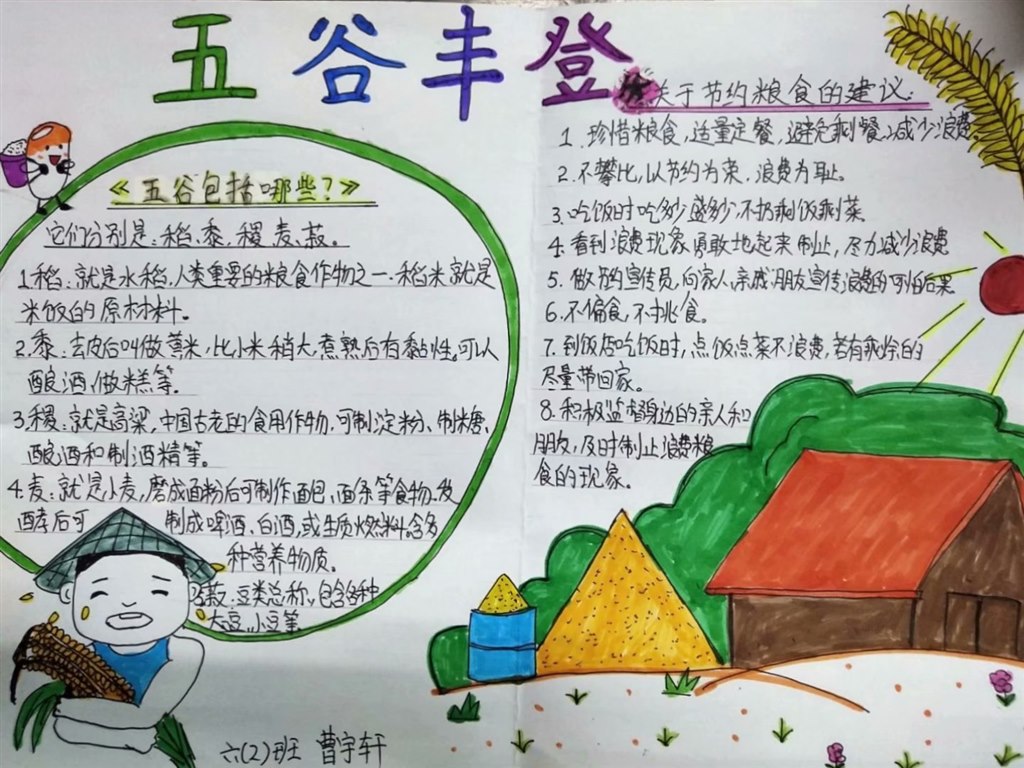 五谷丰登
《五谷包括哪些?》
它们分别是:稻、黍、稷、麦、菽。
1.稻:就是水稻,人类重要的粮食作物之一.稻米就是
米饭的原材料。
2.黍:去皮后叫做黄米,比小米稍大,煮熟后有黏性。可以
酿酒、做糕等。
3.稷:就是高梁,中国古老的食用作物,可制淀粉、制糖、
酿酒和制酒精等。
4.麦:就是小麦,磨成面粉后可制作面包、面条等食物、发
酵后可制成啤酒、白酒,或生质燃料。含多
种营养物质。
5.菽:豆类总称、包含多种
大豆、小豆等
六(2)班 曹宇轩
关于节约粮食的建议:
1.珍惜粮食,适量定餐,避免剩餐,减少浪费
2.不攀比,以节约为荣,浪费为耻。
3.吃饭时吃多少盛多少,不扔剩饭剩菜
4.看到浪费现象勇敢地起来制止,尽力减少浪费
5.做节约宣传员,向家人、亲戚、朋友宣传浪费的可怕后果
6.不偏食,不挑食。
7.到饭店吃饭时,点饭点菜不浪费,若有剩余的
尽量带回家。
8.积极监督身边的亲人和
朋友,及时制止浪费粮
食的现象。